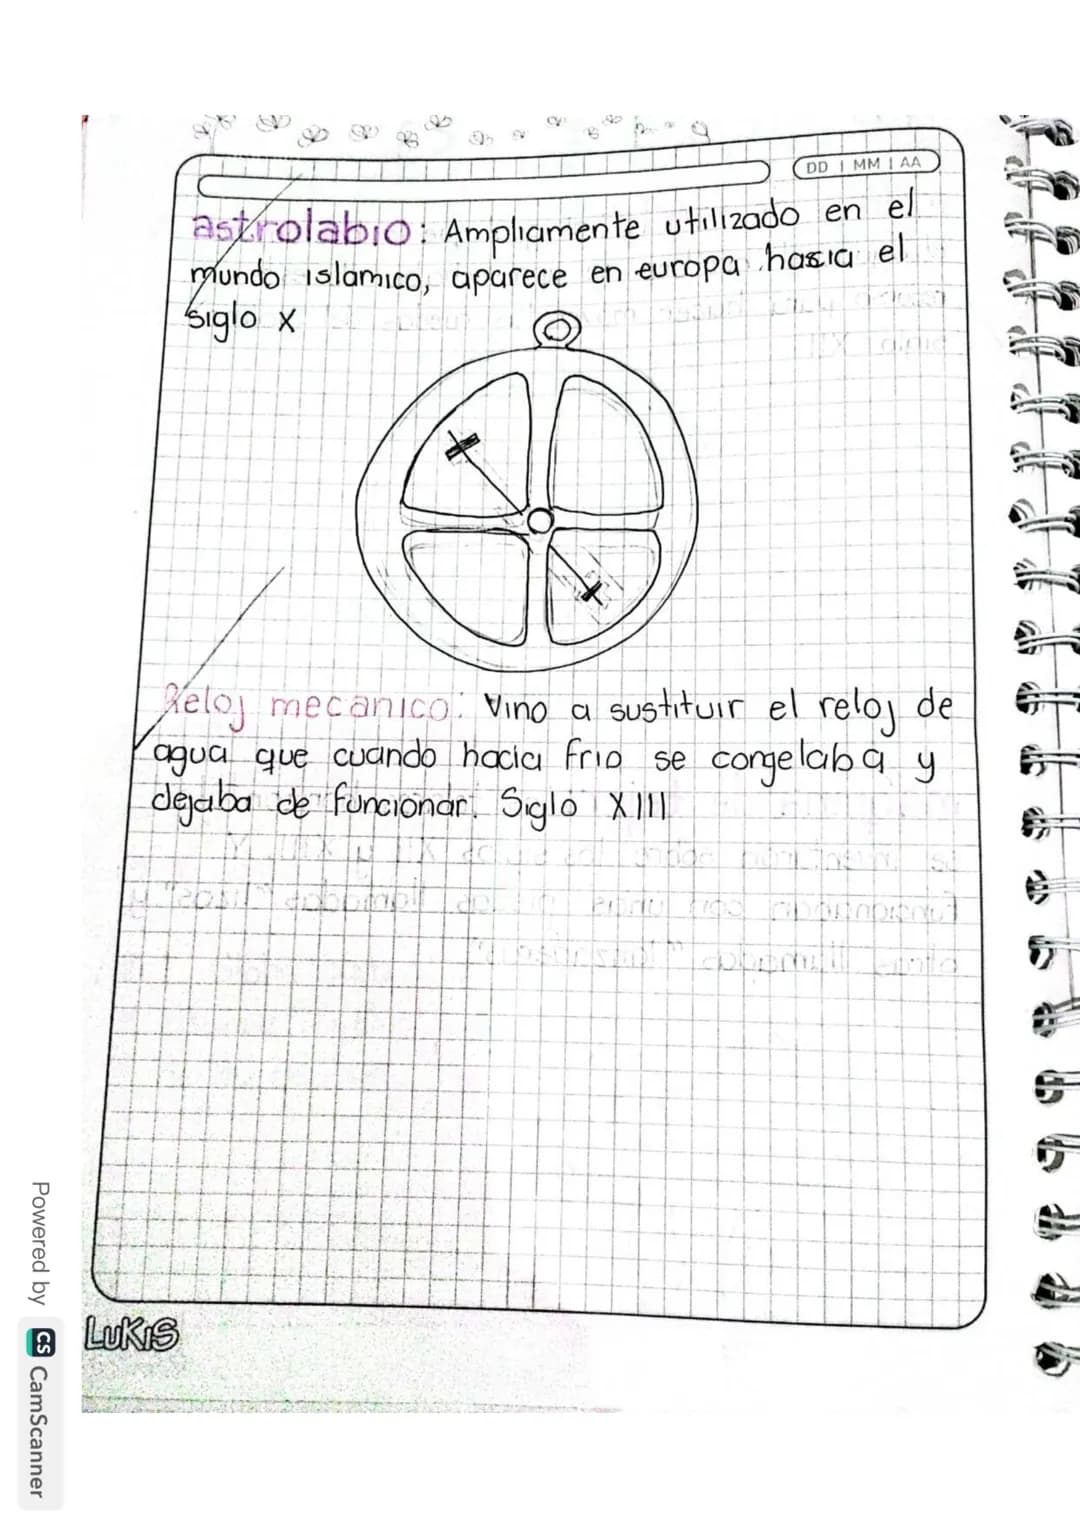 DD | MM | AA
astrolabio: Ampliamente utilizado en el
mundo islamico, aparece en europa hacia el
siglo X
Reloj mecanico: Vino a sustituir el reloj de
agua que cuando hacia frio se congelaba y
dejaba de funcionar. Siglo XIII
LUKIS
Powered by CS CamScanner